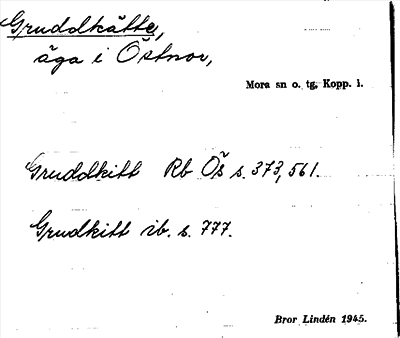 Gruddkätte,
äga i Östnor,
Mora sn o. tg, Kopp. l.
Gruddkitt Rb Ös s. 373, 561.
Grudkitt ib. s. 777.
Bror Lindén 1945.